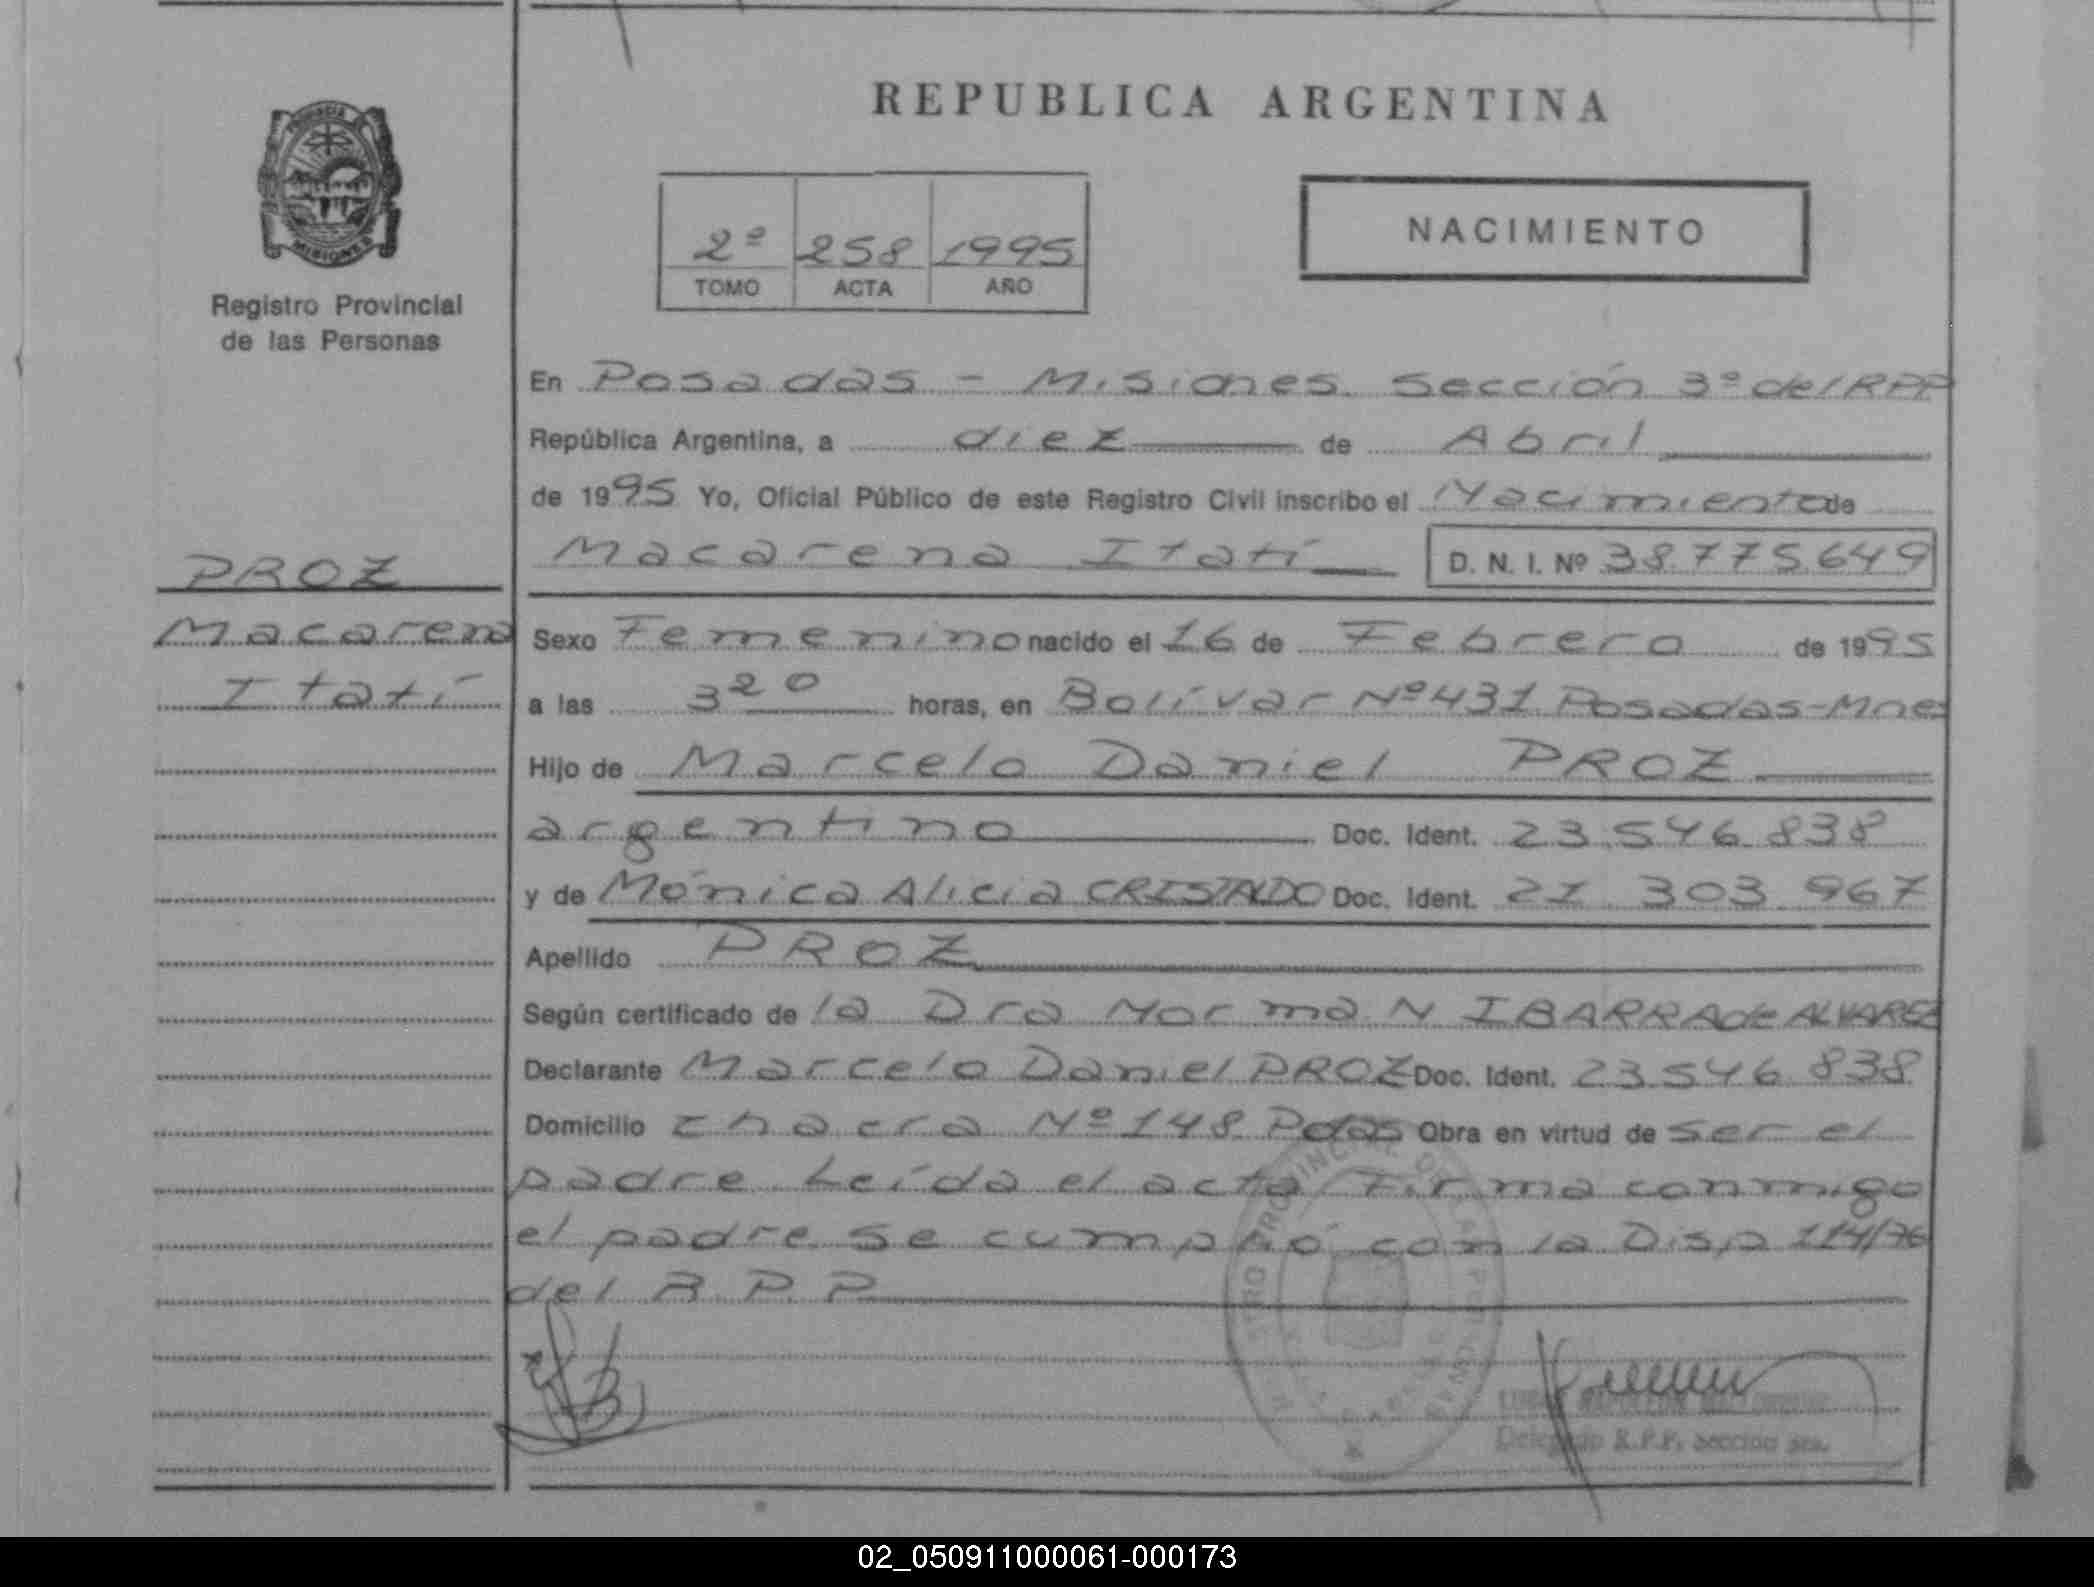 REPUBLICA ARGENTINA
PROVINCIA DE
MISIONES
Registro Provincial
de las Personas
2º 258 1995
TOMO ACTA AÑO
NACIMIENTO
En Posadas - Misiones Sección 3º del RPP
República Argentina, a diez de Abril
de 1995 Yo, Oficial Público de este Registro Civil inscribo el Nacimiento de
Macarena Itatí D. N. I. Nº 38.775.649
PROZ
Macarena
Itatí
Sexo Femenino nacido el 16 de Febrero de 1995
a las 3 20 horas, en Bolívar Nº 431 Posadas-Mnes
Hijo de Marcelo Daniel PROZ
argentino Doc. Ident. 23.546.838
y de Mónica Alicia CRISTALDO Doc. Ident. 21 303 967
Apellido PROZ
Según certificado de la Dra Norma N IBARRA de ALVAREZ
Declarante Marcelo Daniel PROZ Doc. Ident. 23546 838
Domicilio chacra Nº 148 Pdas Obra en virtud de ser el
padre Leída el acta Firma conmigo
el padre se cumplió con la Disp 114/76
del R P P
Delegado R.P.P. Sección 3ra.
02_050911000061-000173